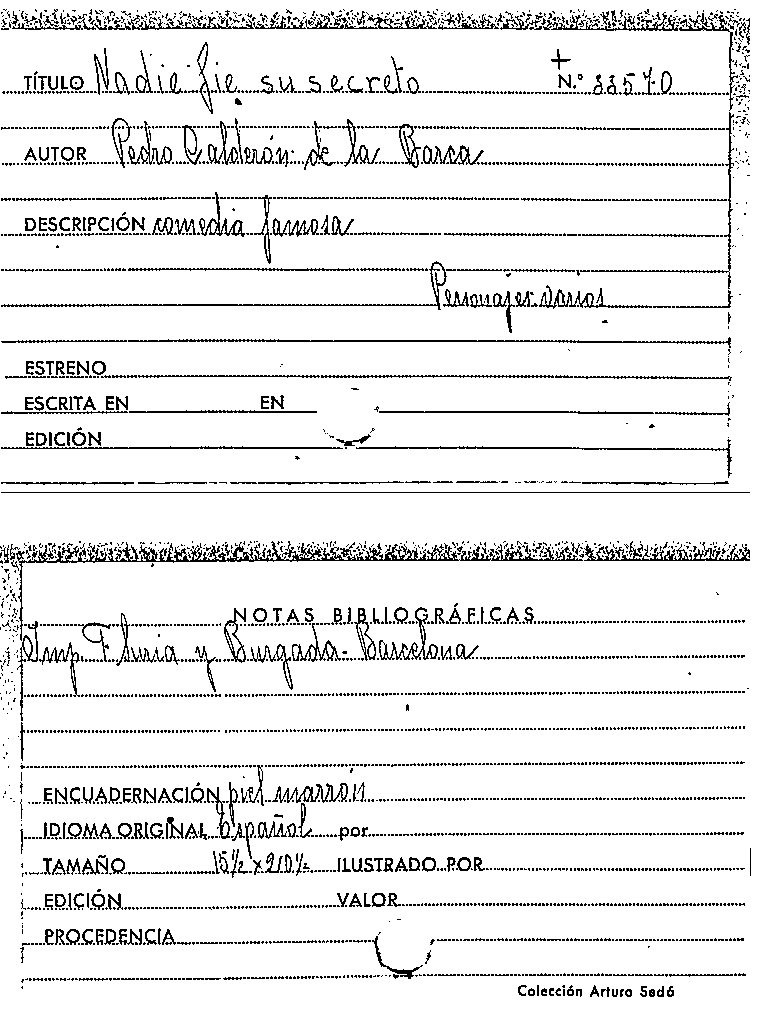 TÍTULO Nadie fie su secreto
+
N.º 33570
AUTOR Pedro Calderón de la Barca
DESCRIPCIÓN comedia famosa
Personajes varios
ESTRENO
ESCRITA EN EN
EDICIÓN
NOTAS BIBLIOGRÁFICAS
Imp. F. Suria y Burgada - Barcelona
ENCUADERNACIÓN piel marrón
IDIOMA ORIGINAL Español por
TAMAÑO ILUSTRADO POR
EDICIÓN VALOR
PROCEDENCIA
Colección Arturo Sedó